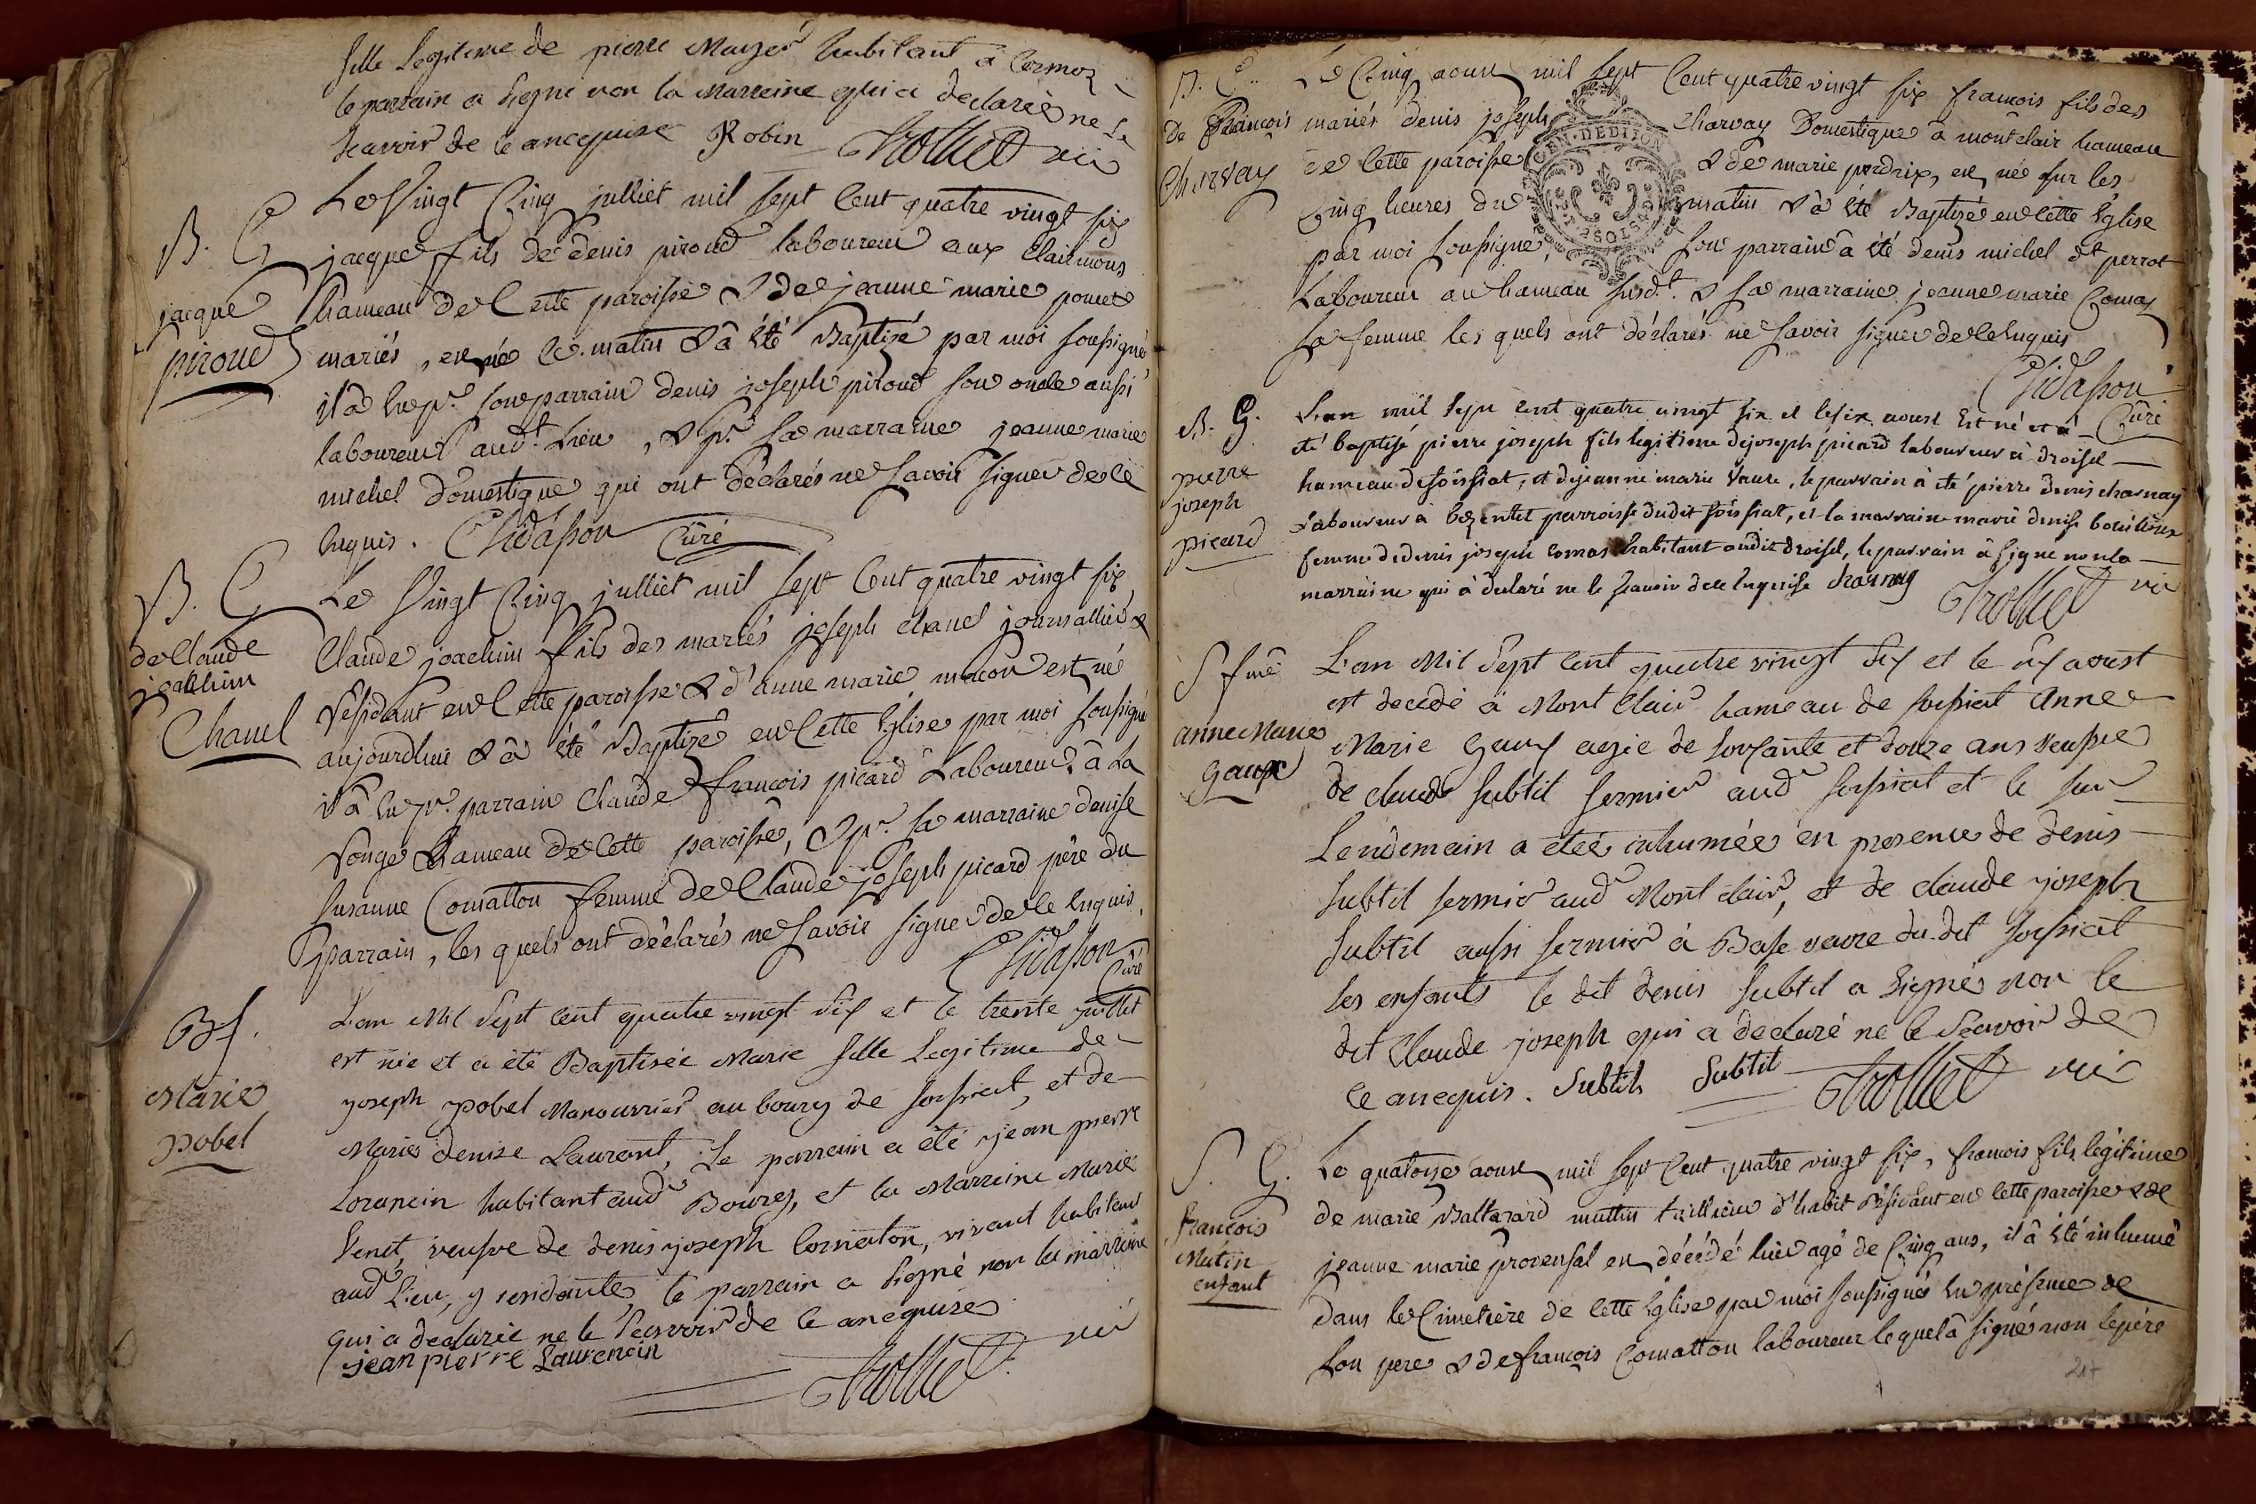 fille Legitime de pierre Mayer habitant à Cormoz
le parrain a signé non la Marreine qui a declarée ne le
scavoir de ce ancequise Robin Trolliet vic
B. G
jacque
piroud
Le Vingt Cinq julliet mil sept Cent quatre vingt six
jacque fils de denis piroud laboureur aux Clairmons
hameau de Cette paroisse & de jeanne marie
mariés, est né Ce matin & â été Baptizé par moi soussigné
il â eu pr. son parrain denis joseph piroud son oncle aussi
laboureur audt. Lieu, & pr. sa marraine jeanne marie
michel domestique qui ont déclarés ne savoir signer de ce
enquis. Chidasson Curé
B. G
de Claude
joachim
Chanel
Le Vingt Cinq julliet mil sept Cent quatre vingt six
Claude joachim fils des mariés joseph chanel journallier
Résidant en Cette paroisse & d'anne marie macon est né
aujourdhui & â été Baptizé en Cette Eglise par moi soussigné
il â eu pr. parrain Claude françois picard Laboureur â La
Vonge hameau de Cette paroisse, & pr. sa marraine denise
susanne Comatton femme de Claude joseph picard père du
parrain, les quels ont déclarés ne savoir signer de ce enquis.
Chidasson
Curé
B f.
Marie
pobel
L'an Mil Sept Cent quatre vingt Six et le trente juillet
est née et a été Baptisée Marie fille Legitime de
joseph pobel Manouvrier au bourg de foissiat, et de
Marie denise Laurent, Le parrain a été jean pierre
Lorancin habitant aud Bourg, et la Marreine Marie
Venet, veufve de denis joseph Cornaton, vivant habitant
aud Lieu, y residante, le parrain a signé non la marreine
qui a declarée ne le Scavoir de ce anequise
jean pierre Laurencin
Trolliet vic
B. G.
de François
Charvay
Le Cinq aoust mil sept Cent quatre vingt six françois fils des
mariés denis joseph Charvay Domestique â montclair hameau
de Cette paroisse & de marie perdrix, est né sur les
Cinq heures du matin & â été Baptizé en Cette Eglise
par moi soussigné, son parrain â été denis michel dt perrot
Laboureur au hameau susdt. & sa marraine jeanne marie Comas
sa femme les quels ont déclarés ne savoir signer de ce enquis
GEN. DE DIJON
Chidasson
Curé
B. G.
pierre
joseph
picard
L'an mil sept cent quatre vingt six et le six aoust Est né et a
été baptisé pierre joseph fils legitime de joseph picard laboureur à droisel
hameau de foissiat, et de jeanne marie Vaure, le parrain à été pierre denis charnay
Laboureur à bezentet parroisse dudit foissiat, et la marraine marie denise
femme de denis joseph comas habitant audit droisel, le parrain à signe non la
marraine qui à declaré ne le scavoir de ce enquise charnay
Trolliet vic
S fme
anne Marie
gaux
L'an Mil Sept Cent quatre vingt Six et le six aoust
est decedé à Mont Clair hameau de foissiat Anne
Marie Gaux agée de soixante et douze ans veufve
de claude subtil fermier aud foissiat et le sur
Lendemain a etée inhumée en presence de denis
subtil fermier aud Mont clair, et de claude joseph
subtil aussi fermier à Basse vavre du dit foissiat
ses enfants le dit denis subtil a signé non le
dit Claude joseph qui a declaré ne le Scavoir de
ce anequis. Subtils Subtil Trolliet vic
S. G.
françois
Mutin
enfant
Le quatorze aoust mil sept Cent quatre vingt six, françois fils légitime
de marie Baltazard muttin tailleur d'habit Résidant en Cette paroisse & de
jeanne marie provensal est décédé hier agé de Cinq ans, il â été inhumé
dans le Cimetière de Cette Eglise par moi soussigné en présence de
son pere & de françois Comatton laboureur lequel â signé non le père
217